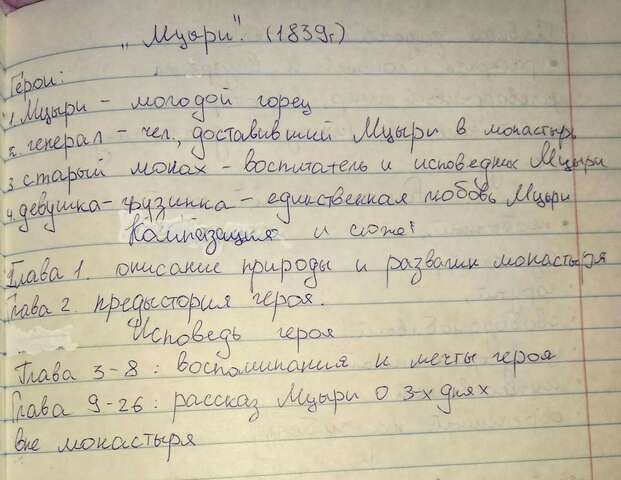 „Мцыри". (1839г)
Герои:
1. Мцыри - молодой горец
2. генерал - чел, доставивший Мцыри в монастырь
3. старый монах - воспитатель и исповедник Мцыри
4. девушка-грузинка - единственная любовь Мцыри
Композиция и сюжет
Глава 1. описание природы и развалин монастыря
Глава 2. предыстория героя.
Исповедь героя
Глава 3-8: воспоминания и мечты героя
Глава 9-26: рассказ Мцыри о 3-х днях
вне монастыря